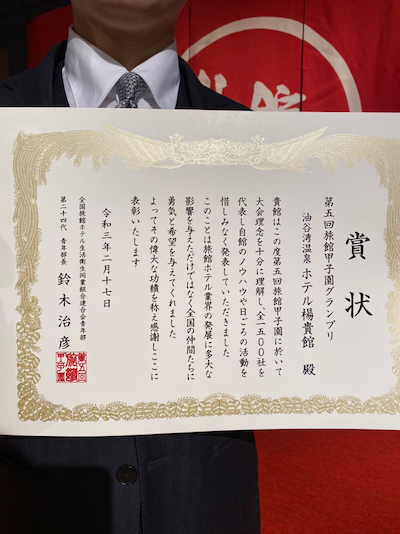 賞状
第五回旅館甲子園グランプリ
油谷湾温泉 ホテル楊貴館 殿
貴館はこの度第五回旅館甲子園に於いて
大会理念を十分に理解し、全一五〇〇社を
代表し自館のノウハウや日ごろの活動を
惜しみなく発表していただきました
このことは旅館ホテル業界の発展に多大な
影響を与えただけではなく全国の仲間たちに
勇気と希望を与えてくれました
よってその偉大な功績を称え感謝しここに
表彰いたします
令和三年二月十七日
全国旅館ホテル生活衛生同業組合連合会青年部
第二十四代 青年部長 鈴木治彦
第五回
旅館
甲子園